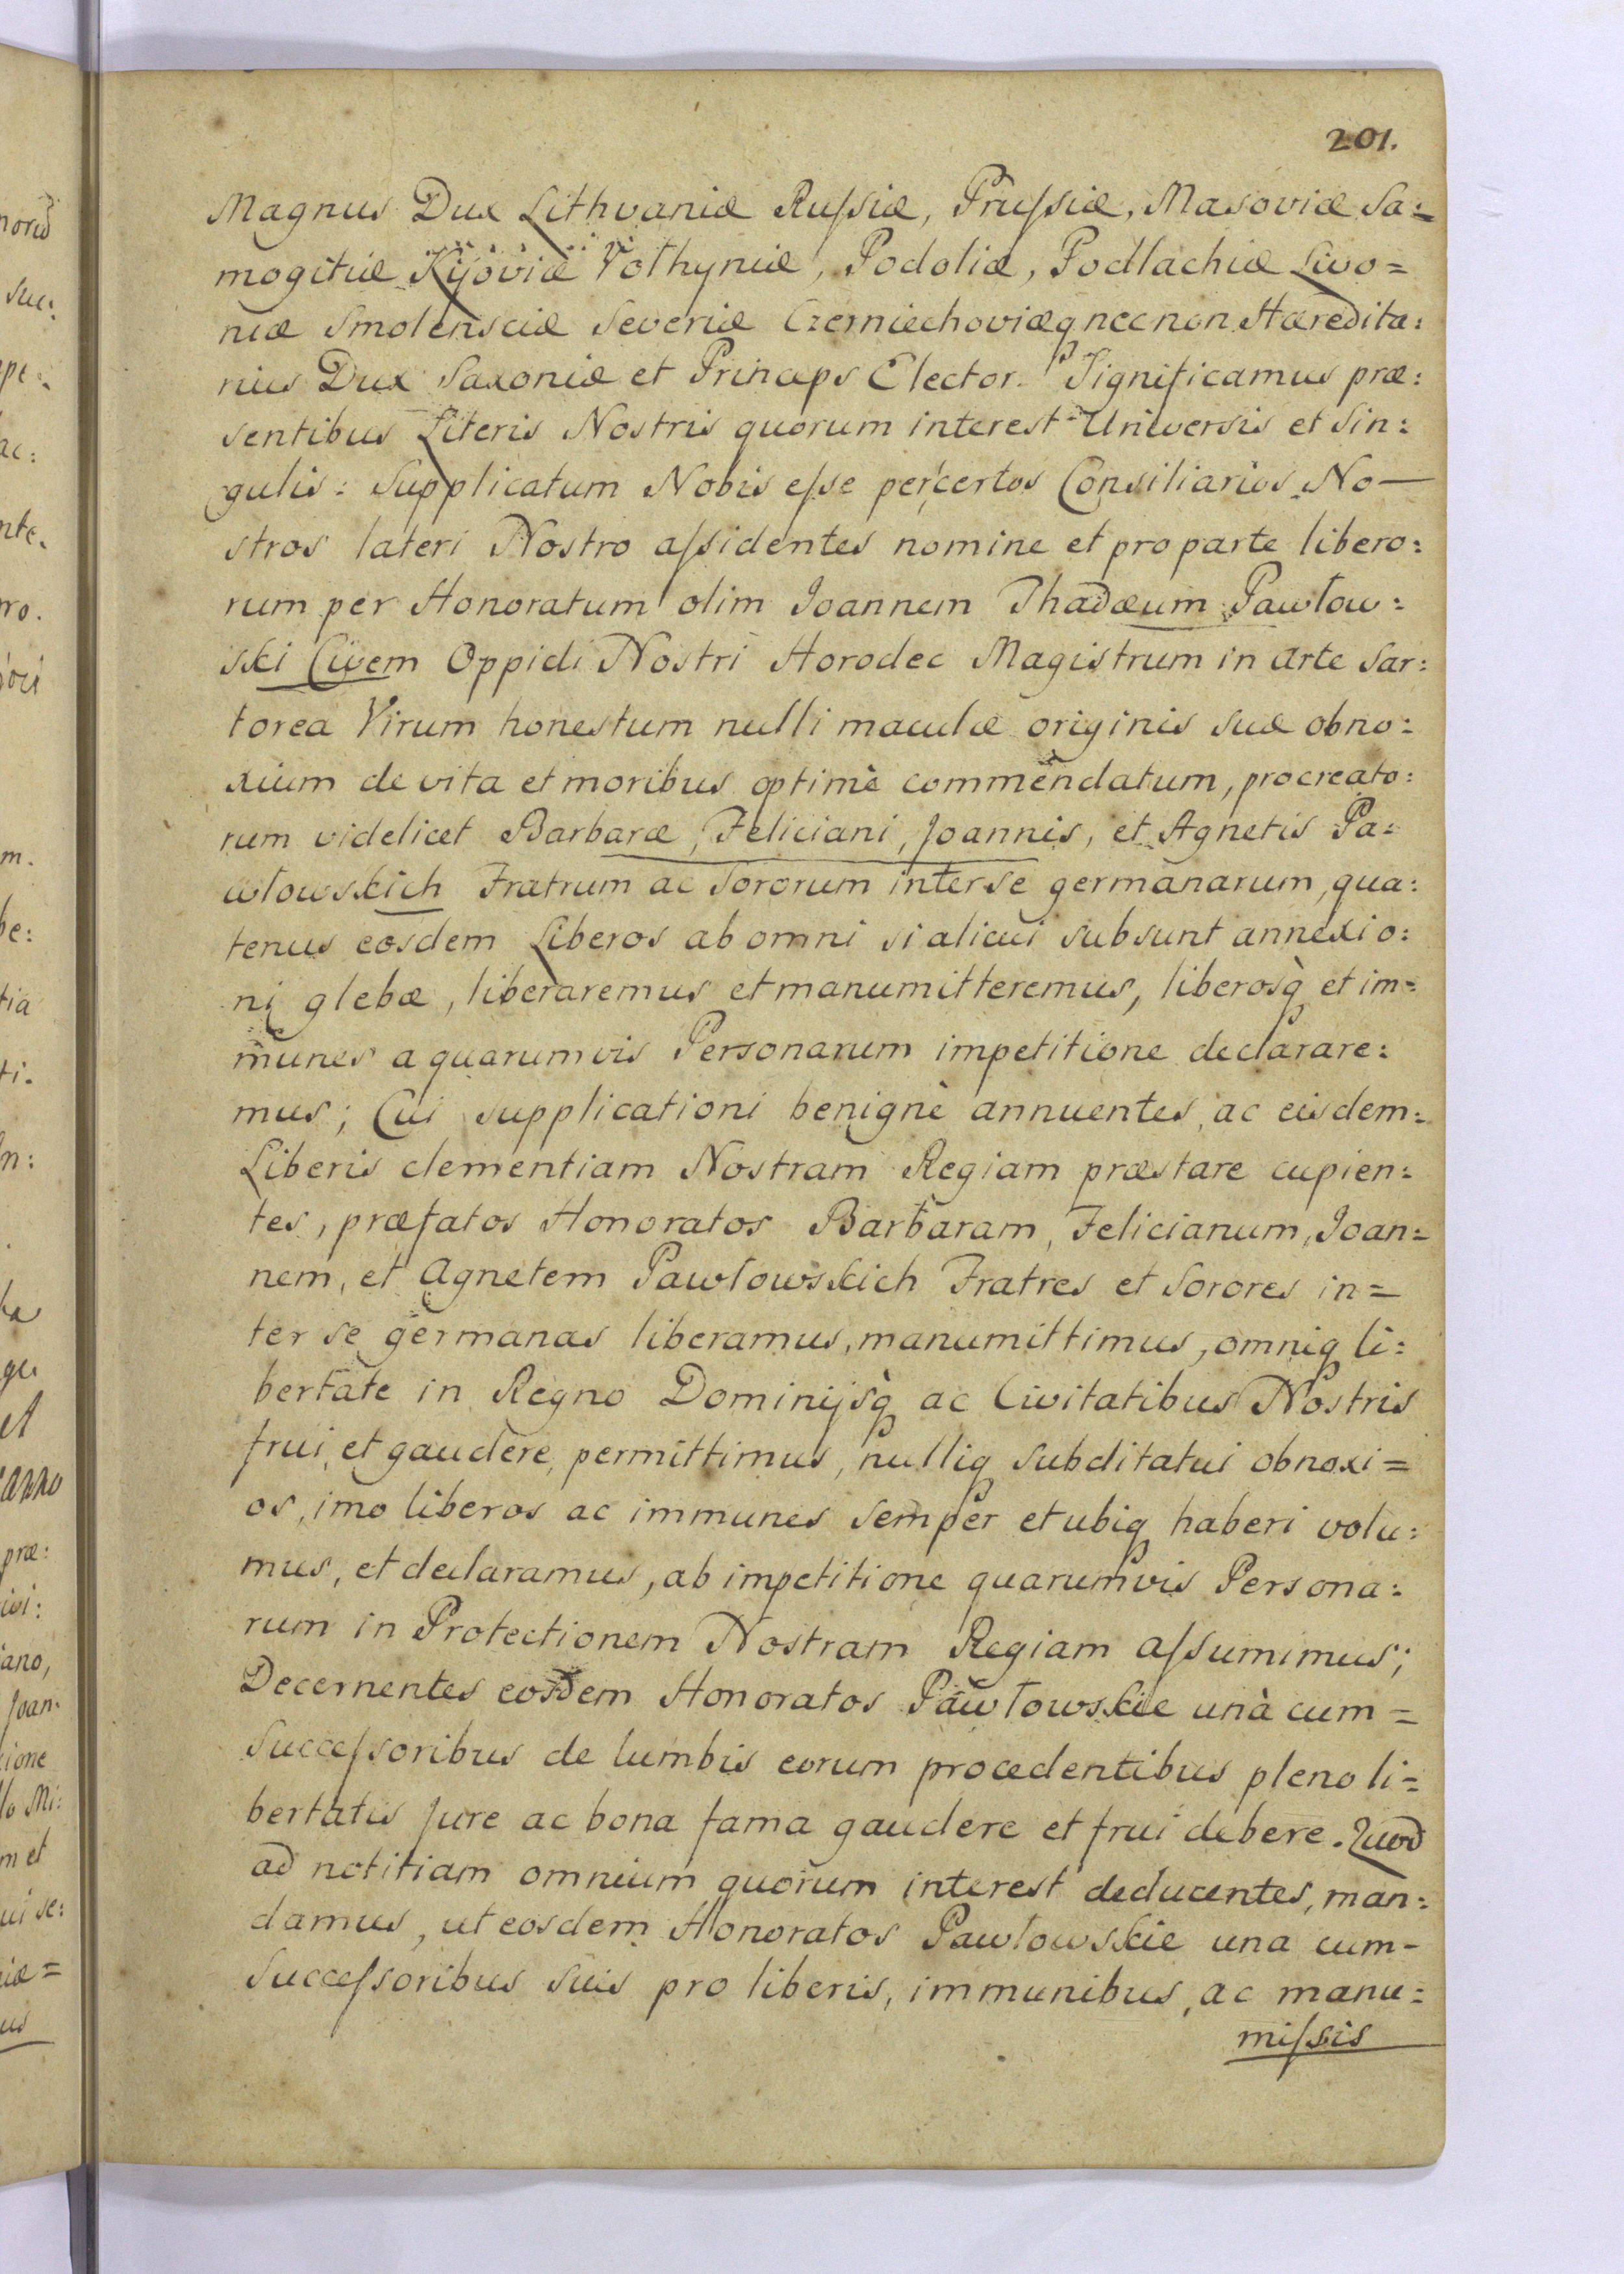 201.
Magnus Dux Lithvaniæ Ruſsiæ, Pruſsiæ, Masoviæ Sa=
mogitiæ Kijoviæ Volhyniæ, Podoliæ, Podlachiæ Livo=
niæ Smolensciæ Severiæ Czerniechoviæq necnon Hæredita:
rius Dux Saxoniæ et Princeps Elector. Significamus præ:
sentibus Literis Nostris quorum interest Universis et Sin:
gulis: Supplicatum Nobis eſse per certos Consiliarios No—
stros lateri Nostro aſsidentes nomine et pro parte libero:
rum per Honoratum olim Joannem Thadæum Pawłow:
ski Civem Oppidi Nostri Horodec Magistrum in Arte Sar:
torea Virum honestum nulli maculæ originis suæ obno:
xium de vita et moribus optimè commendatum, procreato:
rum videlicet Barbaræ, Feliciani, Joannis, et Agnetis Pa=
włowskich Fratrum ac Sororum inter se germanarum, qua:
tenus eosdem Liberos ab omni si alicui subsunt annexio:
ni glebæ, liberaremus et manumitteremus, liberosq̀ et im=
munes a quarumvis Personarum impetitione declarare:
mus; Cui supplicationi benignè annuentes, ac eisdem=
Liberis clementiam Nostram Regiam præstare cupien:
tes, præfatos Honoratos Barbaram, Felicianum, Joan=
nem, et Agnetem Pawłowskich Fratres et Sorores in=
ter se germanas liberamus, manumittimus, omniq li:
bertate in Regno Dominijsq̀ ac Civitatibus Nostris
frui, et gaudere, permittimus, nulliq subditatui obnoxi=
os, imo liberos ac immunes semper et ubiq haberi volu:
mus, et declaramus, ab impetitione quarumvis Persona:
rum in Protectionem Nostram Regiam aſsumimus;
Decernentes eosdem Honoratos Pawłowskie unà cum=
Succeſsoribus de lumbis eorum procedentibus pleno li=
bertatis Jure ac bona fama gaudere et frui debere. Quod
ad notitiam omnium quorum interest deducentes, man:
damus, ut eosdem Honoratos Pawłowskie una cum-
Succeſsoribus suis pro liberis, immunibus, ac manu:
miſsis